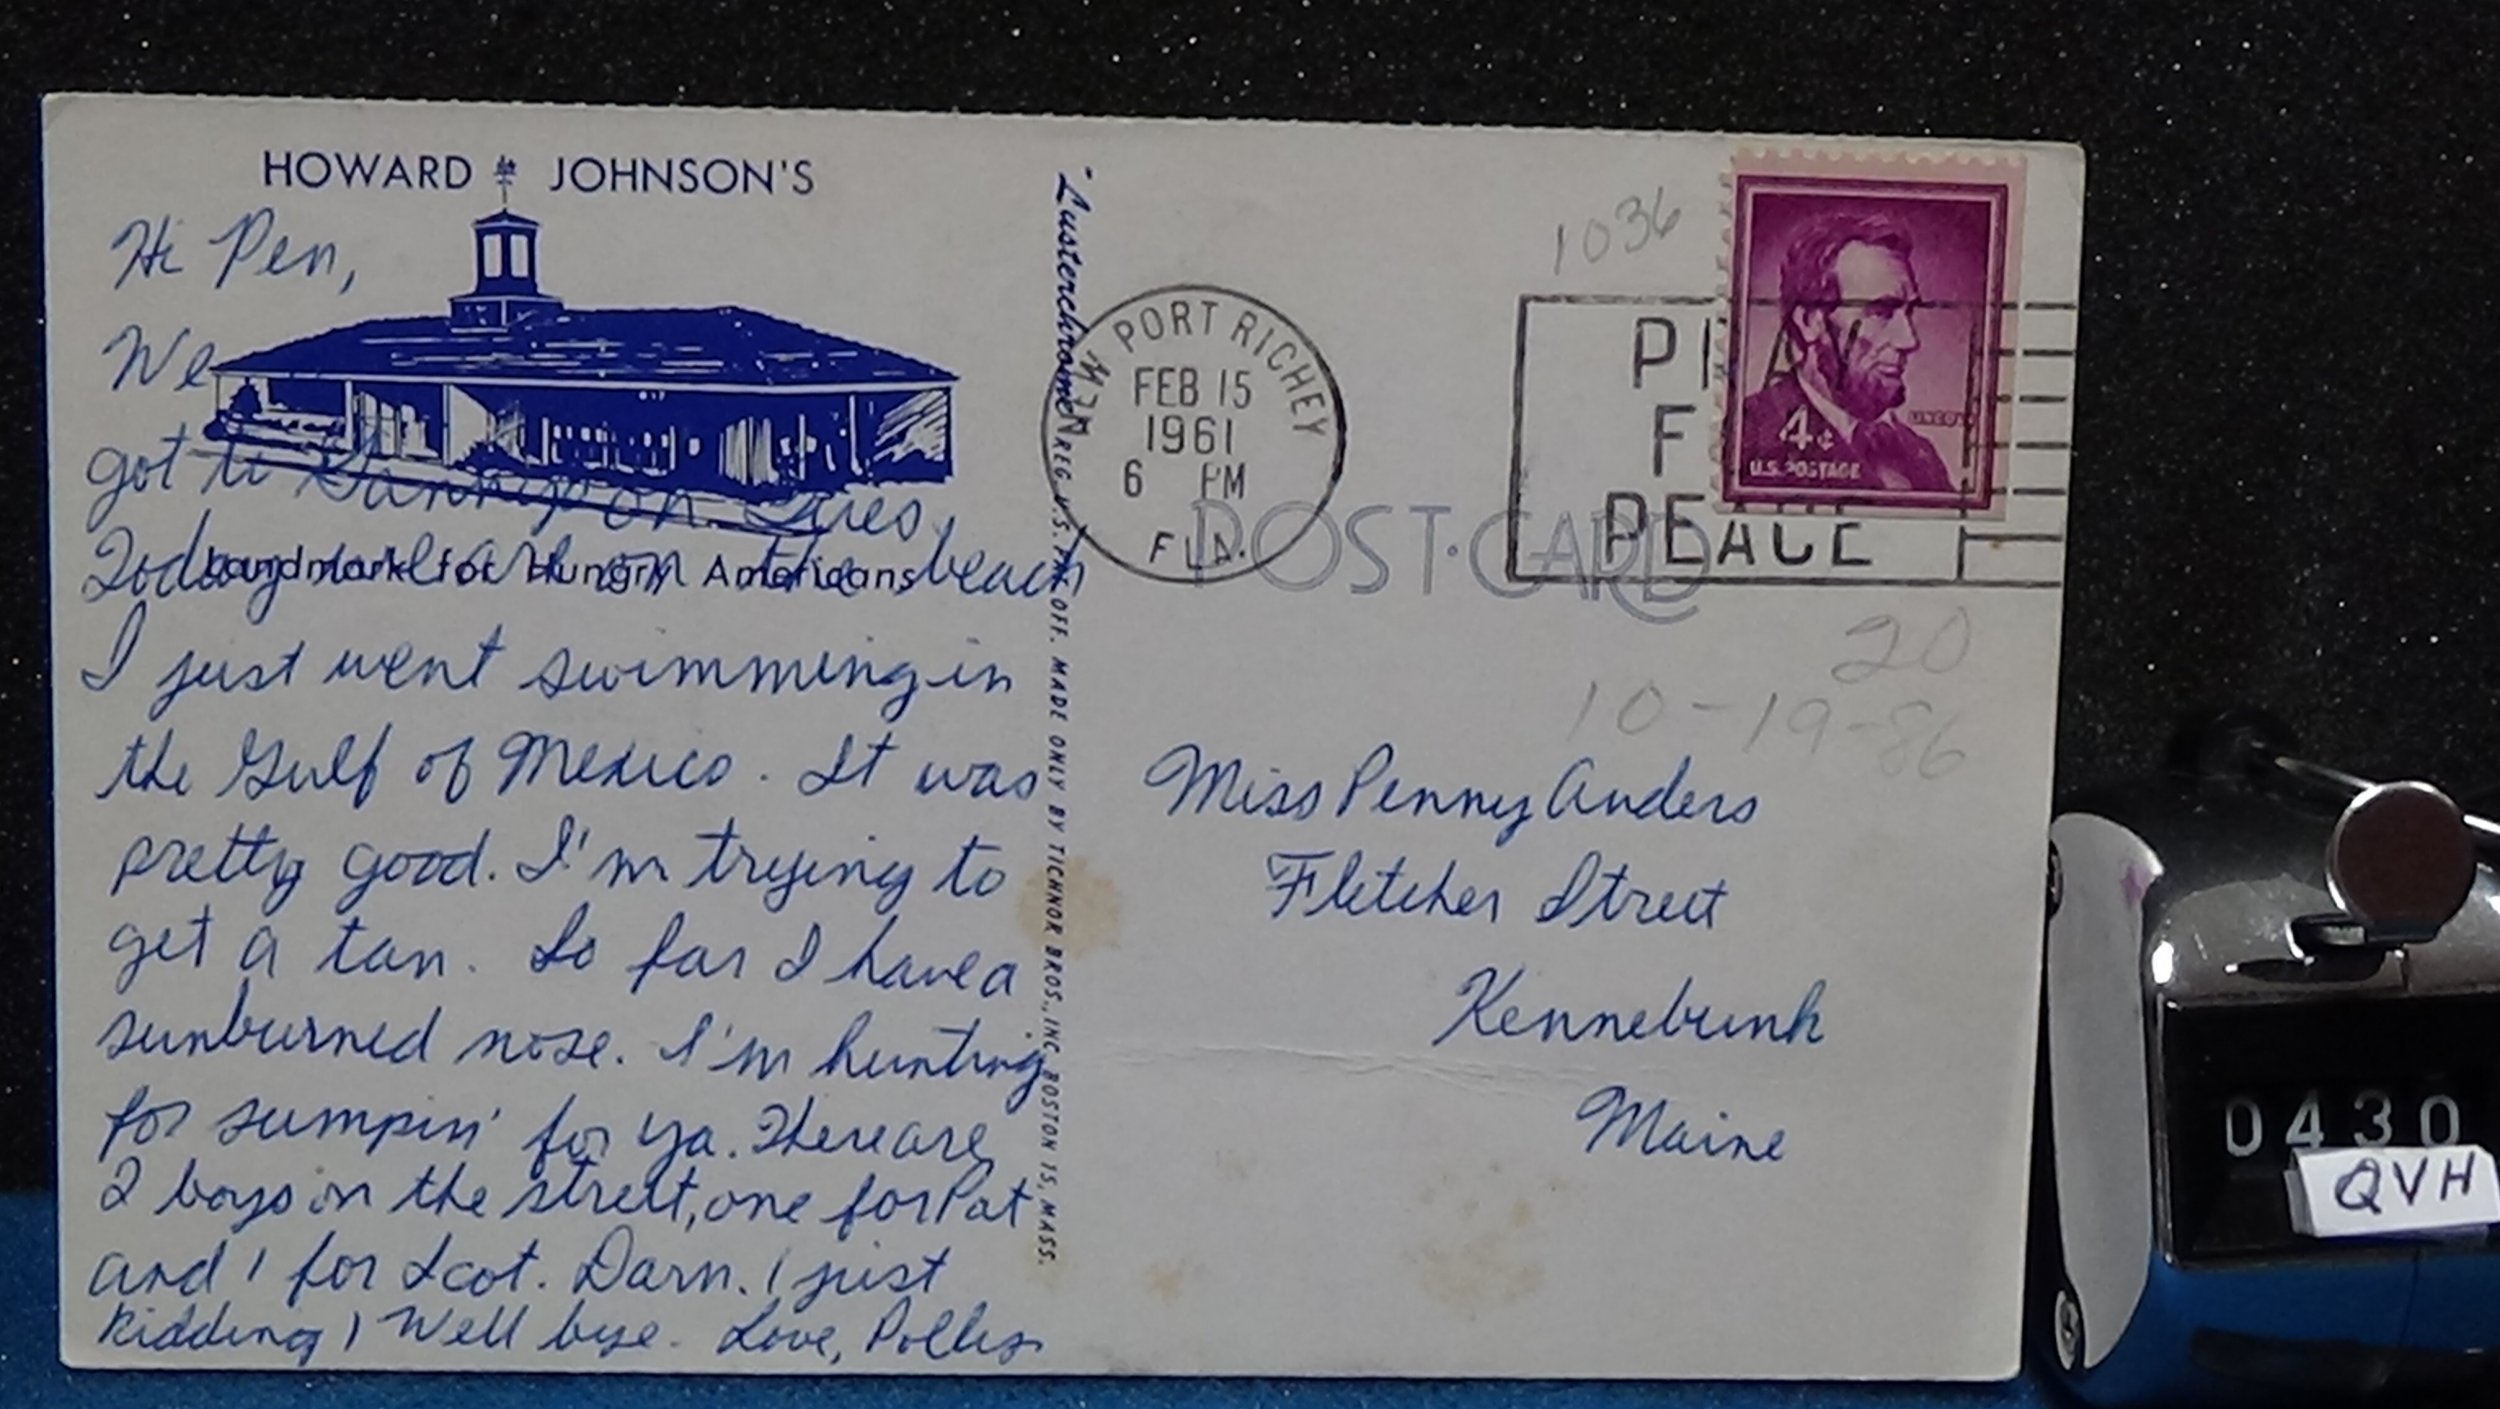 HOWARD JOHNSON'S
Hi Pen,
We
got to Granny's on Tues.
Today we are on the beach
Landmark for Hungry Americans
I just went swimming in
the Gulf of Mexico. It was
pretty good. I'm trying to
get a tan. So far I have a
sunburned nose. I'm hunting
for sumpin' for ya. There are
2 boys on the street, one for Pat
and 1 for Scot. Darn. (just
kidding) Well bye. Love, Polly
"Lusterchrome" REG. U.S. PAT. OFF. MADE ONLY BY TICHNOR BROS., INC. BOSTON 15, MASS.
NEW PORT RICHEY
FEB 15
1961
6 PM
FLA.
1036
PRAY
F
PEACE
LINCOLN
4¢
U.S. POSTAGE
POST CARD
20
10-19-86
Miss Penny Anders
Fletcher Street
Kennebunk
Maine
0430
QVH